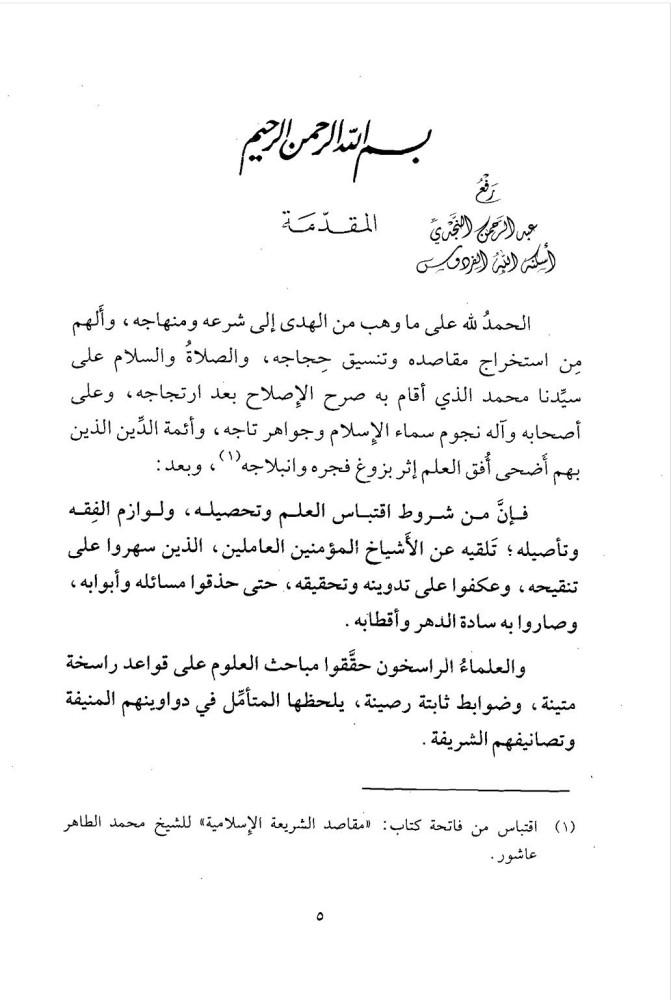 بسم الله الرحمن الرحيم
رَفْعُ
عبد الرحمن النجدي
أسكنه الله الفردوس
المقدّمَة
الحمدُ لله على ما وهب من الهدى إلى شرعه ومنهاجه، وأَلهم
مِن استخراج مقاصده وتنسيق حِجاجه، والصلاةُ والسلام على
سيِّدنا محمد الذي أقام به صرح الإصلاح بعد ارتجاجه، وعلى
أصحابه وآله نجوم سماء الإسلام وجواهر تاجه، وأئمة الدِّين الذين
بهم أَضحى أُفق العلم إثر بزوغ فجره وانبلاجه(١)، وبعد:
فإنَّ من شروط اقتباس العلم وتحصيله، ولوازم الفِقه
وتأصيله؛ تَلقيه عن الأَشياخ المؤمنين العاملين، الذين سهروا على
تنقيحه، وعكفوا على تدوينه وتحقيقه، حتى حذقوا مسائله وأبوابه،
وصاروا به سادة الدهر وأقطابه.
والعلماءُ الراسخون حقَّقوا مباحث العلوم على قواعد راسخة
متينة، وضوابط ثابتة رصينة، يلحظها المتأمِّل في دواوينهم المنيفة
وتصانيفهم الشريفة.
(١) اقتباس من فاتحة كتاب: «مقاصد الشريعة الإسلامية» للشيخ محمد الطاهر
عاشور.
٥